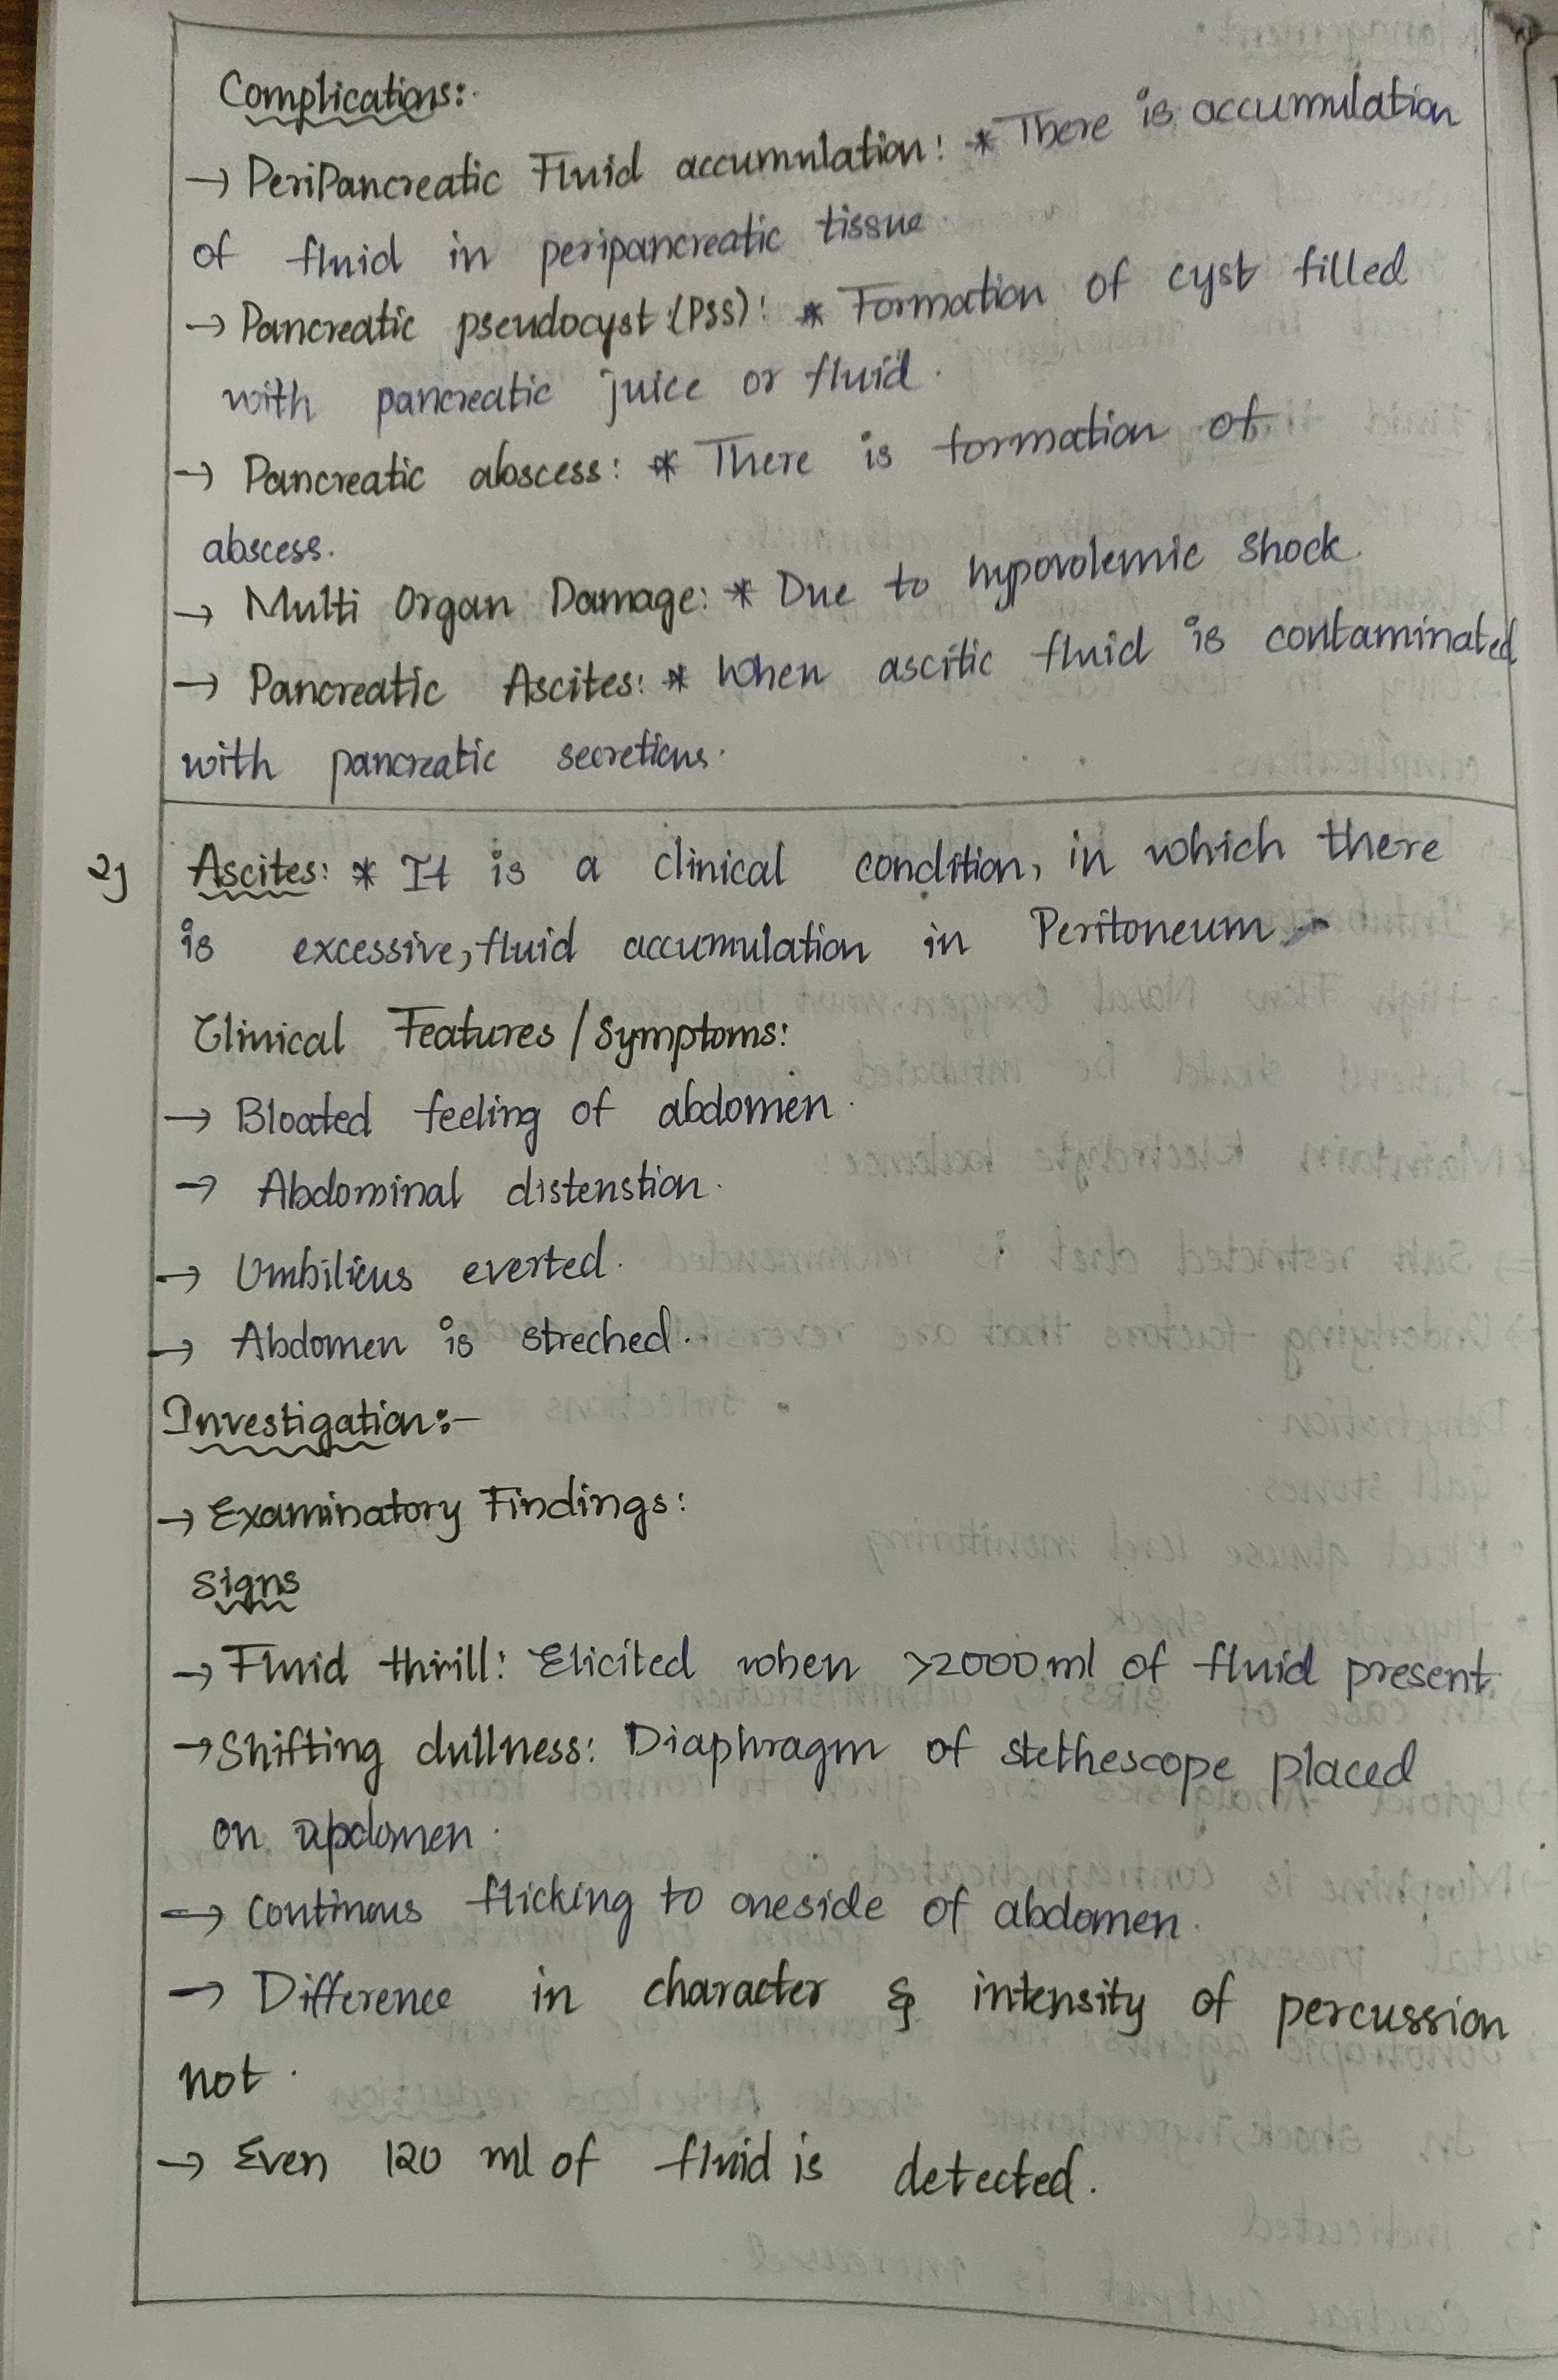 Complications:-
→ PeriPancreatic Fluid accumulation: * There is accumulation
of fluid in peripancreatic tissue
→ Pancreatic pseudocyst:(PSS): * Formation of cyst filled
with pancreatic juice or fluid.
→ Pancreatic abscess: * There is formation of
abscess.
→ Multi Organ Damage: * Due to hypovolemic shock.
→ Pancreatic Ascites: * When ascitic fluid is contaminated
with pancreatic secretions.
2) Ascites: * It is a clinical condition, in which there
is excessive, fluid accumulation in Peritoneum
Clinical Features / Symptoms:
→ Bloated feeling of abdomen.
→ Abdominal distenstion.
→ Umbilicus everted.
→ Abdomen is streched.
Investigation:-
→ Examinatory Findings:
Signs
→ Fluid thrill: Elicited when >2000 ml of fluid present
→ Shifting dullness: Diaphragm of stethescope placed
on apdomen.
→ Continous flicking to oneside of abdomen.
→ Difference in character & intensity of percussion
not.
→ Even 120 ml of fluid is detected.